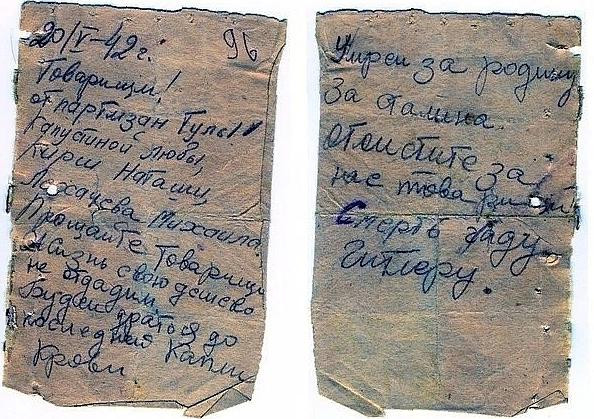 20/V-42 г.
96
Товарищи!
от партизан Тулы!
Капустиной Любы,
Кирши Наташи,
Лахачева Михаила.
Прощайте Товарищи
Жизнь свою дешево
не отдадим.
Будем драться до
последней Капли
Крови
Умрем за родину
За Сталина.
Отомстите за
нас товарищи
Смерть гаду
Гитлеру.